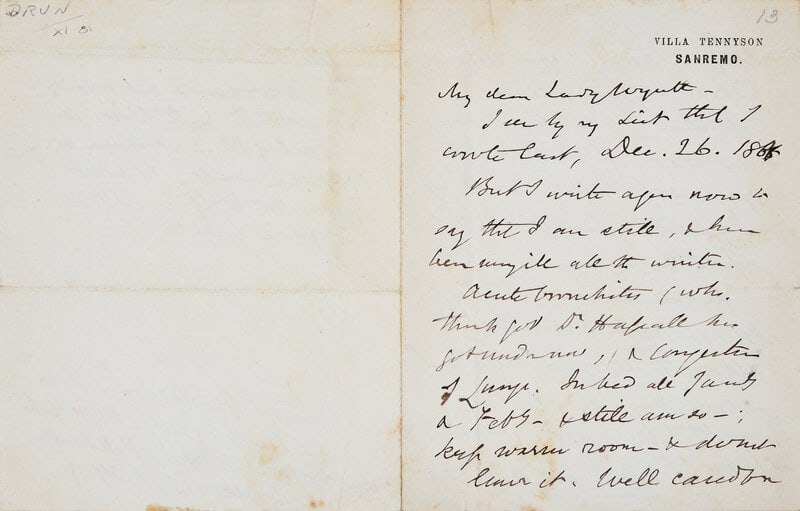 DRUN
XI
13
VILLA TENNYSON
SANREMO.
My dear Lady Wyatt –
I see by my List that I
wrote last, Dec. 26. 188
But I write again now to
say that I am still, & have
been very ill all the winter.
Acute bronchitis (wh.
thank God Dr. Hassall has
got under now,) & Congestion
of Lungs. In bed all Jany
& Feby – & still am so – ;
keep warm room – & do not
leave it. Well cared for